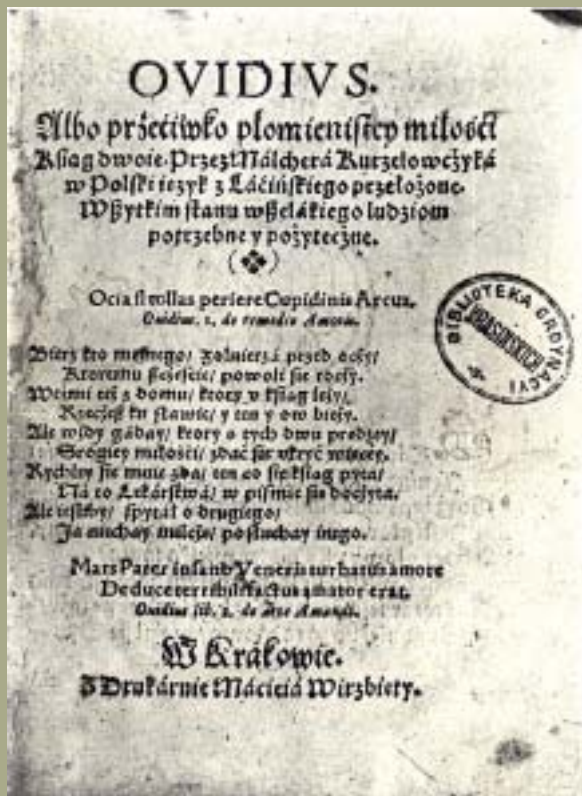 OVIDIVS.
Albo przećiwko płomienistey miłości
Kśiąg dwoie. Przez Málcherá Kurzelowcżyká
w Polski ięzyk z Łáćińskiego przełożone.
Wszytkim stanu wszelákiego ludziom
potrzebne y pożytecżne.
Ocia si tollas periere Cupidinis Arcus.
Ouidius. 1. de remedio Amoris.
Bierz kto mężnego/ żołnierzá przed ocży/
Ktoremu szcżeście/ powoli sie tocży.
Weźmi też z domu/ ktory v kśiąg leży/
y ten y ow bieży.
Ale gáday/ ktory z tych dwu prędzey/
Srogiey miłości/ zdać sie vkryć więcey.
Rychley sie mnie zda/ ten co sie kśiąg pyta/
Ná to Lekárstwá/ w pismie sie docżyta.
Ale iesliby/ spytał o drugiego/
Ja niechay milcżę/ posłuchay inego.
Mars Pater insano Veneris turbatus amore
De duce terribili factus amator erat.
Ouidius lib. 2. de Arte Amandi.
W Krákowie.
Z Drukárnie Máćieiá Wirzbięty.
BIBLIOTEKA ORDYNACYI
KRASIŃSKICH